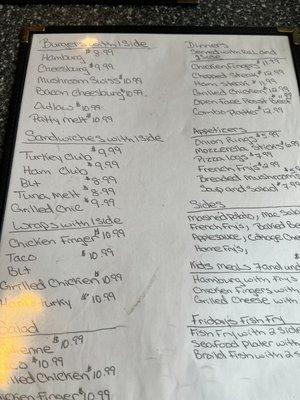 Burgers with 1 Side
Hamburg $8.99
Cheesburg $9.99
Mushroom Swiss $10.99
Bacon Cheesburg $10.99
Outlaw $10.99
Patty melt $10.99
Sandwiches with 1 Side
Turkey Club $9.99
Ham Club $9.99
Blt $8.99
Tuna melt $8.99
Grilled Chic $9.99
Wraps with 1 Side
Chicken Finger $10.99
Taco $10.99
Blt
Grilled Chicken $10.99
Turky $10.99
Salad
$10.99
$10.99
Chicken $10.99
Chicken Finger $10.99
Dinners
Served with Roll and
Side
Chicken Fingers $11.99
Chopped Steak $12.99
Ham Steak $11.99
Grilled Chicken $12.99
Open Face Roast Beef
Combo Platter $12.99
Appetizers
Onion Rings $5.99
Mozzerella Sticks $6.99
Pizza logs $7.99
French Fry's $5.99
Breaded Mushrooms
Soup and Salad $7.99
Sides
mashed potato, Mac Sala
French Fry's, Baked Be
Applesauce, Cottage Chee
Home Fry's,
Kids Meals 7 and und
Hamburg with Fry's
Chicken Fingers with
Grilled Cheese with
Friday's Fish Fry
Fish Fry with 2 Side
Seafood Plater with
Broild Fish with 2 S